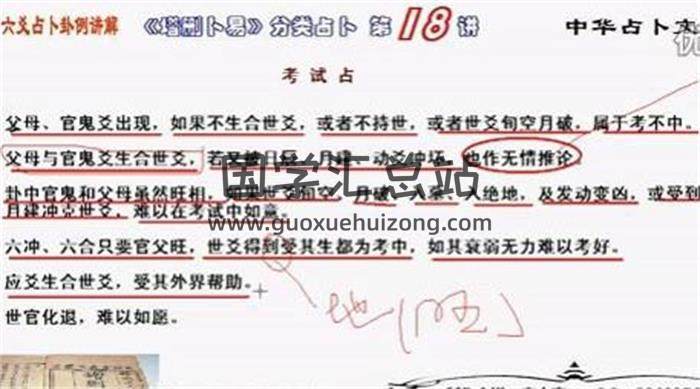 六爻占卜卦例讲解 《增删卜易》分类占卜 第18讲 中华占卜
考试占
父母、官鬼爻出现，如果不生合世爻，或者不持世，或者世爻旬空月破，属于考不中。
父母与官鬼爻生合世爻，若又被日辰、月建、动爻冲坏，也作无情推论。
卦中官鬼和父母虽然旺相，如果世爻旬空、月破、入墓、入绝地，及发动变凶，或受到
月建冲克世爻，难以在考试中如意。
国学汇总站
www.guoxuehuizong.com
六冲、六合只要官父旺，世爻得到受其生都为考中，如其衰弱无力难以考好。
应爻生合世爻，受其外界帮助。
世官化退，难以如愿。